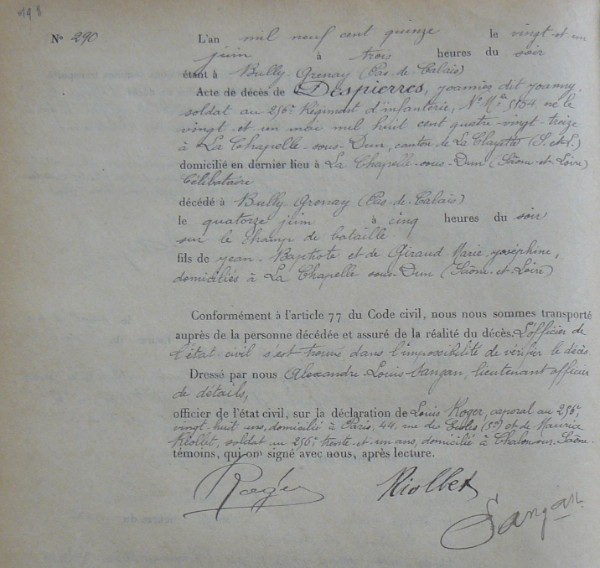 198
N° 290 L'an mil neuf cent quinze le vingt et un
juin à trois heures du soir
étant à Bully-Grenay (Pas-de-Calais)
Acte de décès de Despierres, Joannès dit Joanny
soldat au 256e Régiment d'infanterie, N° Mle 5164, né le
vingt et un mai mil huit cent quatre-vingt-treize
à La Chapelle-sous-Dun, canton de La Clayette (S.-et-L.)
domicilié en dernier lieu à La Chapelle-sous-Dun (Saône-et-Loire)
Célibataire
décédé à Bully-Grenay (Pas-de-Calais)
le quatorze juin à cinq heures du soir
sur le champ de bataille
fils de Jean-Baptiste et de Giraud Marie Joséphine,
domiciliés à La Chapelle-sous-Dun (Saône-et-Loire)
Conformément à l'article 77 du Code civil, nous nous sommes transporté
auprès de la personne décédée et assuré de la réalité du décès. L'officier de
l'état-civil s'est trouvé dans l'impossibilité de vérifier le décès
Dressé par nous Alexandre Louis Sangan, lieutenant officier
de détails,
officier de l'état civil, sur la déclaration de Louis Roger, caporal au 256e,
vingt-huit ans, domicilié à Paris, 44, rue des (5e) et de Maurice
Riollet, soldat au 256e trente-et-un ans, domicilié à Chalon-sur-Saône
témoins, qui ont signé avec nous, après lecture.
Roger Riollet
Sangan